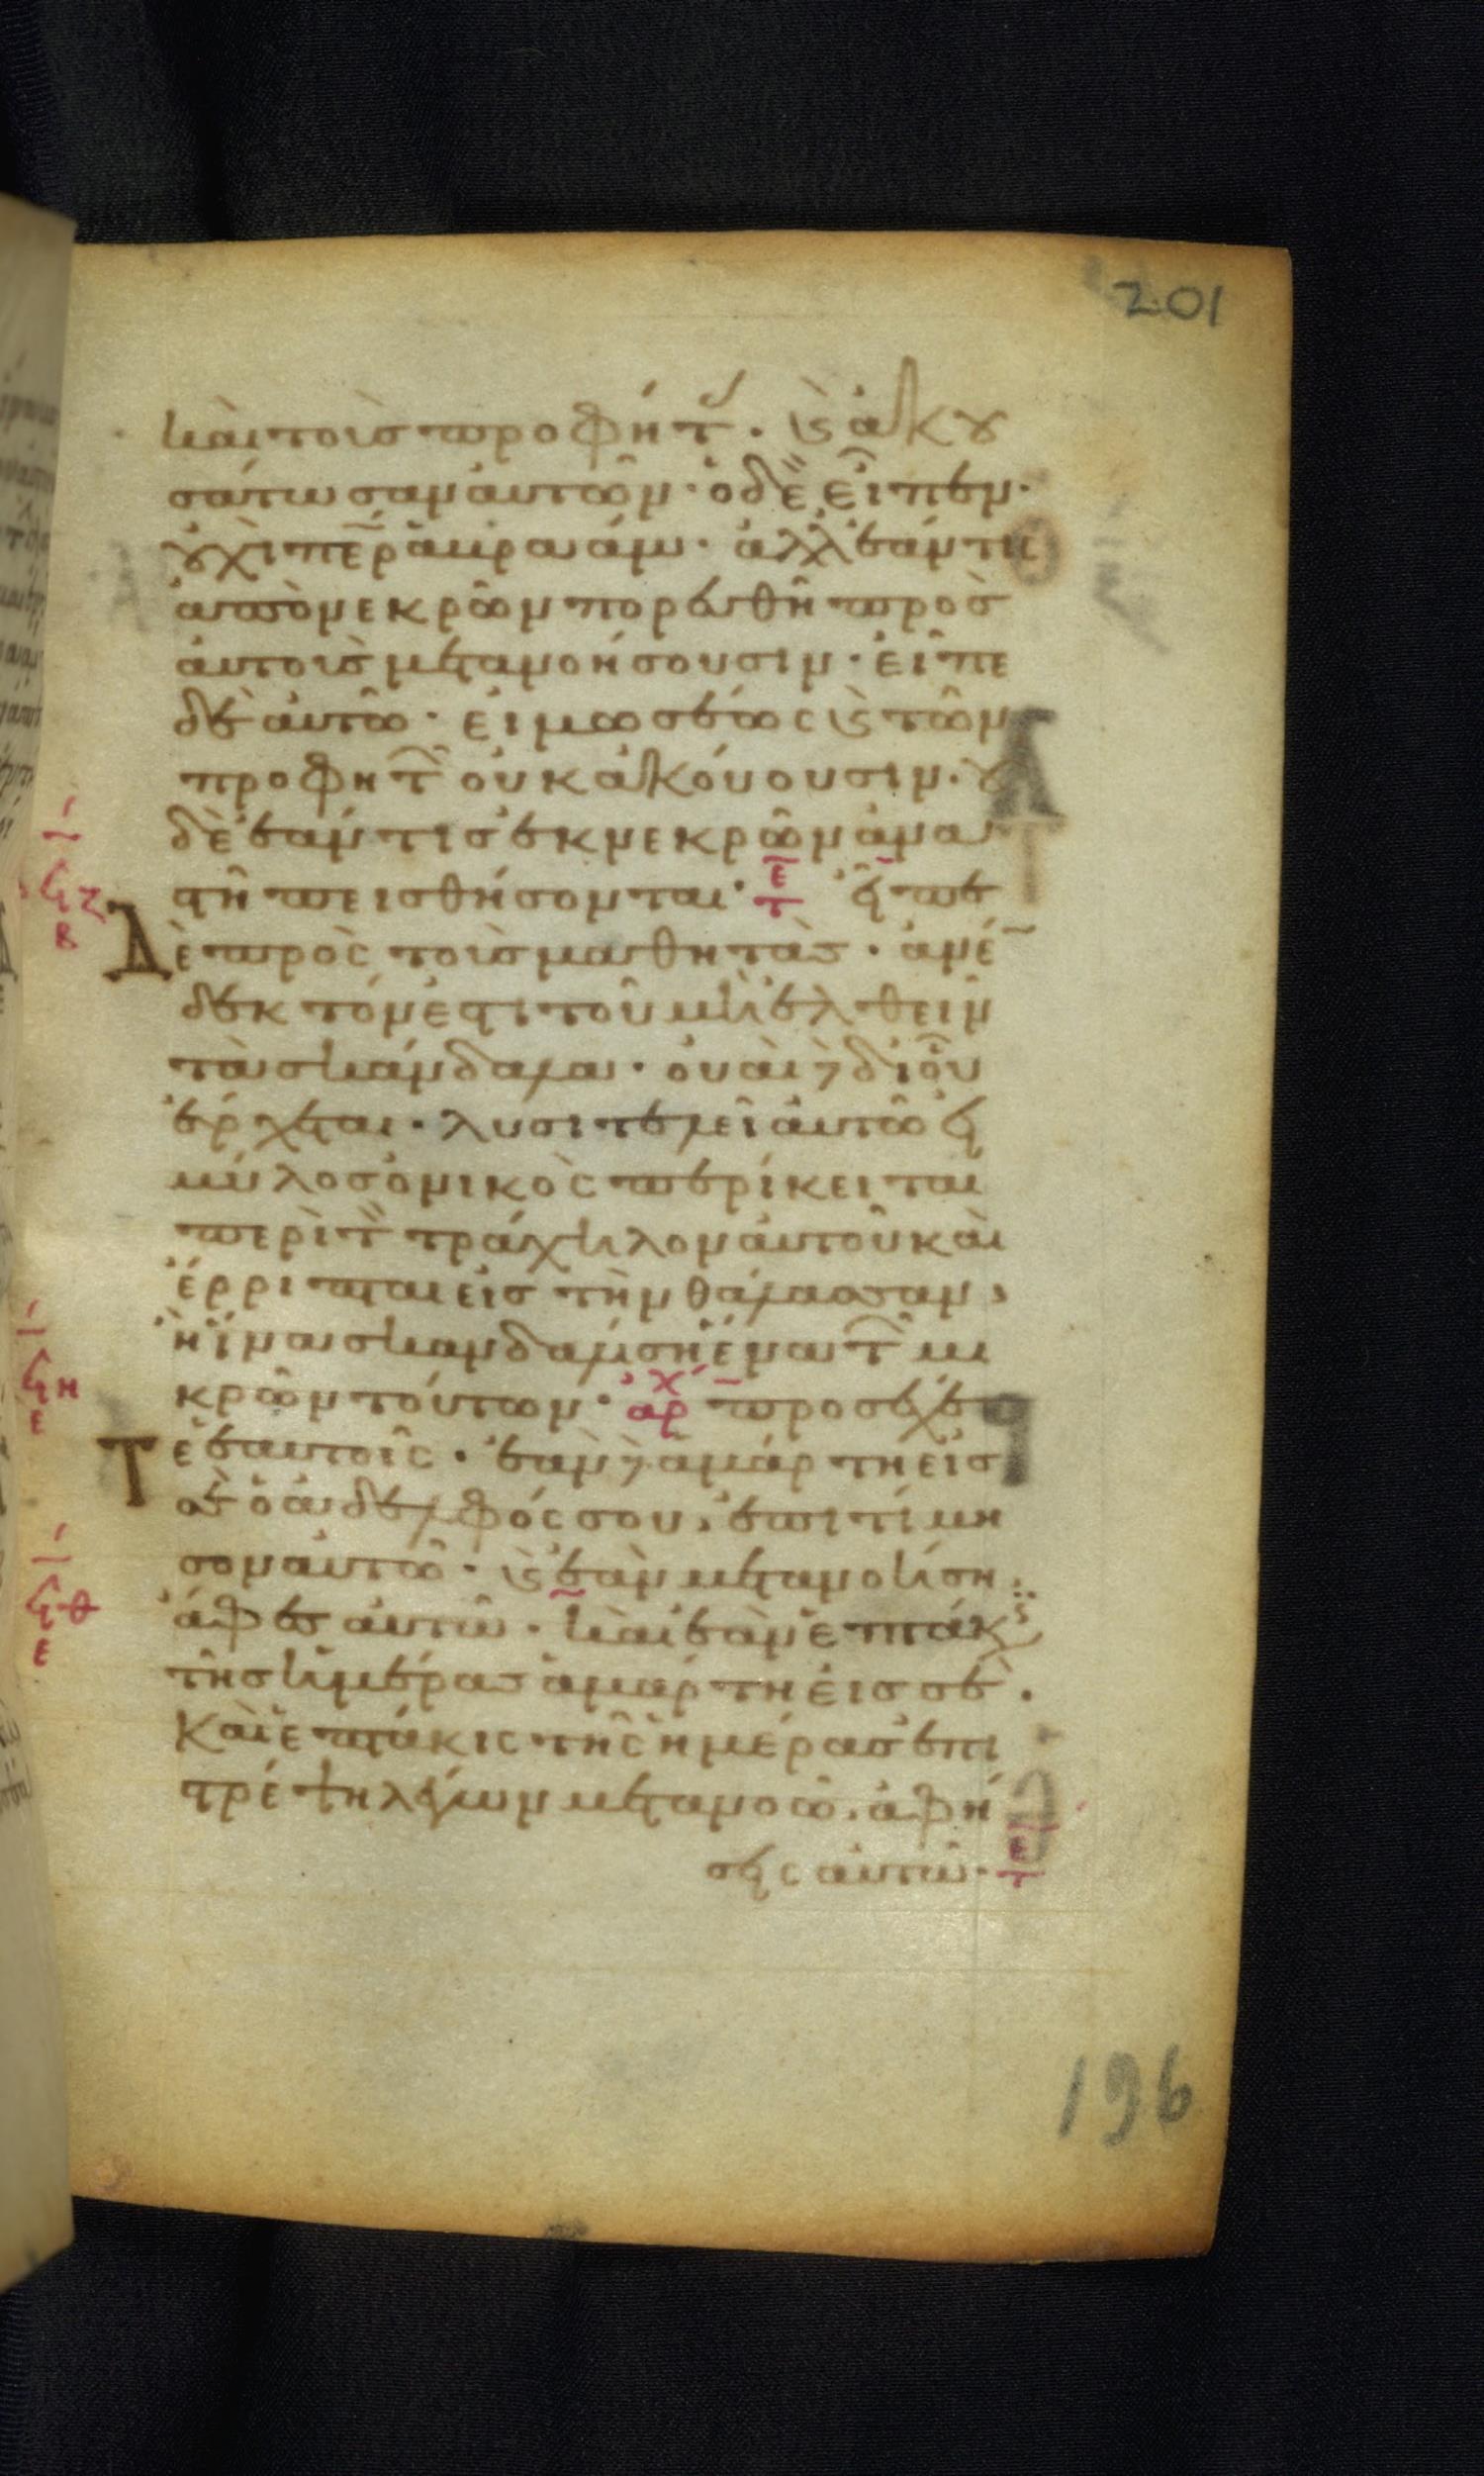 201
καὶ τοῖς προφήτ · κ ἀκου
σάτωσαν αὐτῶν · ὁ δὲ εἶπεν ·
οὐχὶ περ ἀβραάμ · ἀλλ ἐάν τις
ἀπὸ νεκρῶν πορευθῆ πρὸς
αὐτοὺς μετανοήσουσιν · εἶπε
δὲ αὐτῶ · εἰ μωσέως κ τῶν
προφητ οὐκ ἀκούουσιν · οὐ
δὲ ἐάν τις ἐκ νεκρῶν ἀνα
στῆ πεισθήσονται · τε εἶπε
Δὲ πρὸς τοὺς μαθητὰς · ἀνέν
δεκτόν ἐστι τοῦ μὴ ἐλθεῖν
τὰ σκάνδαλα · οὐαὶ δὲ δι οὗ
ἔρχεται · λυσιτελεῖ αὐτῶ εἰ
μύλος ὀνικὸς περίκειται
περὶ τ τράχηλον αὐτοῦ καὶ
ἔρριπται εἰς τὴν θάλασσαν ,
ἢ ἵνα σκανδαλίση ἕνα τ μι
κρῶν τούτων · ἀρχ προσέχε
Τε ἑαυτοῖς · ἐὰν δὲ ἁμάρτη εἰς
σὲ ὁ ἀδελφός σου , ἐπιτίμη
σον αὐτῶ · κ ἐὰν μετανοήση
ἄφες αὐτῶ · καὶ ἐὰν ἑπτάκις
τῆς ἡμέρας ἁμάρτη εἰς σὲ ·
Καὶ ἑπτάκις τῆς ἡμέρας ἐπι
στρέψη λέγων μετανοῶ · ἀφή
σεις αὐτῶ · τε
196